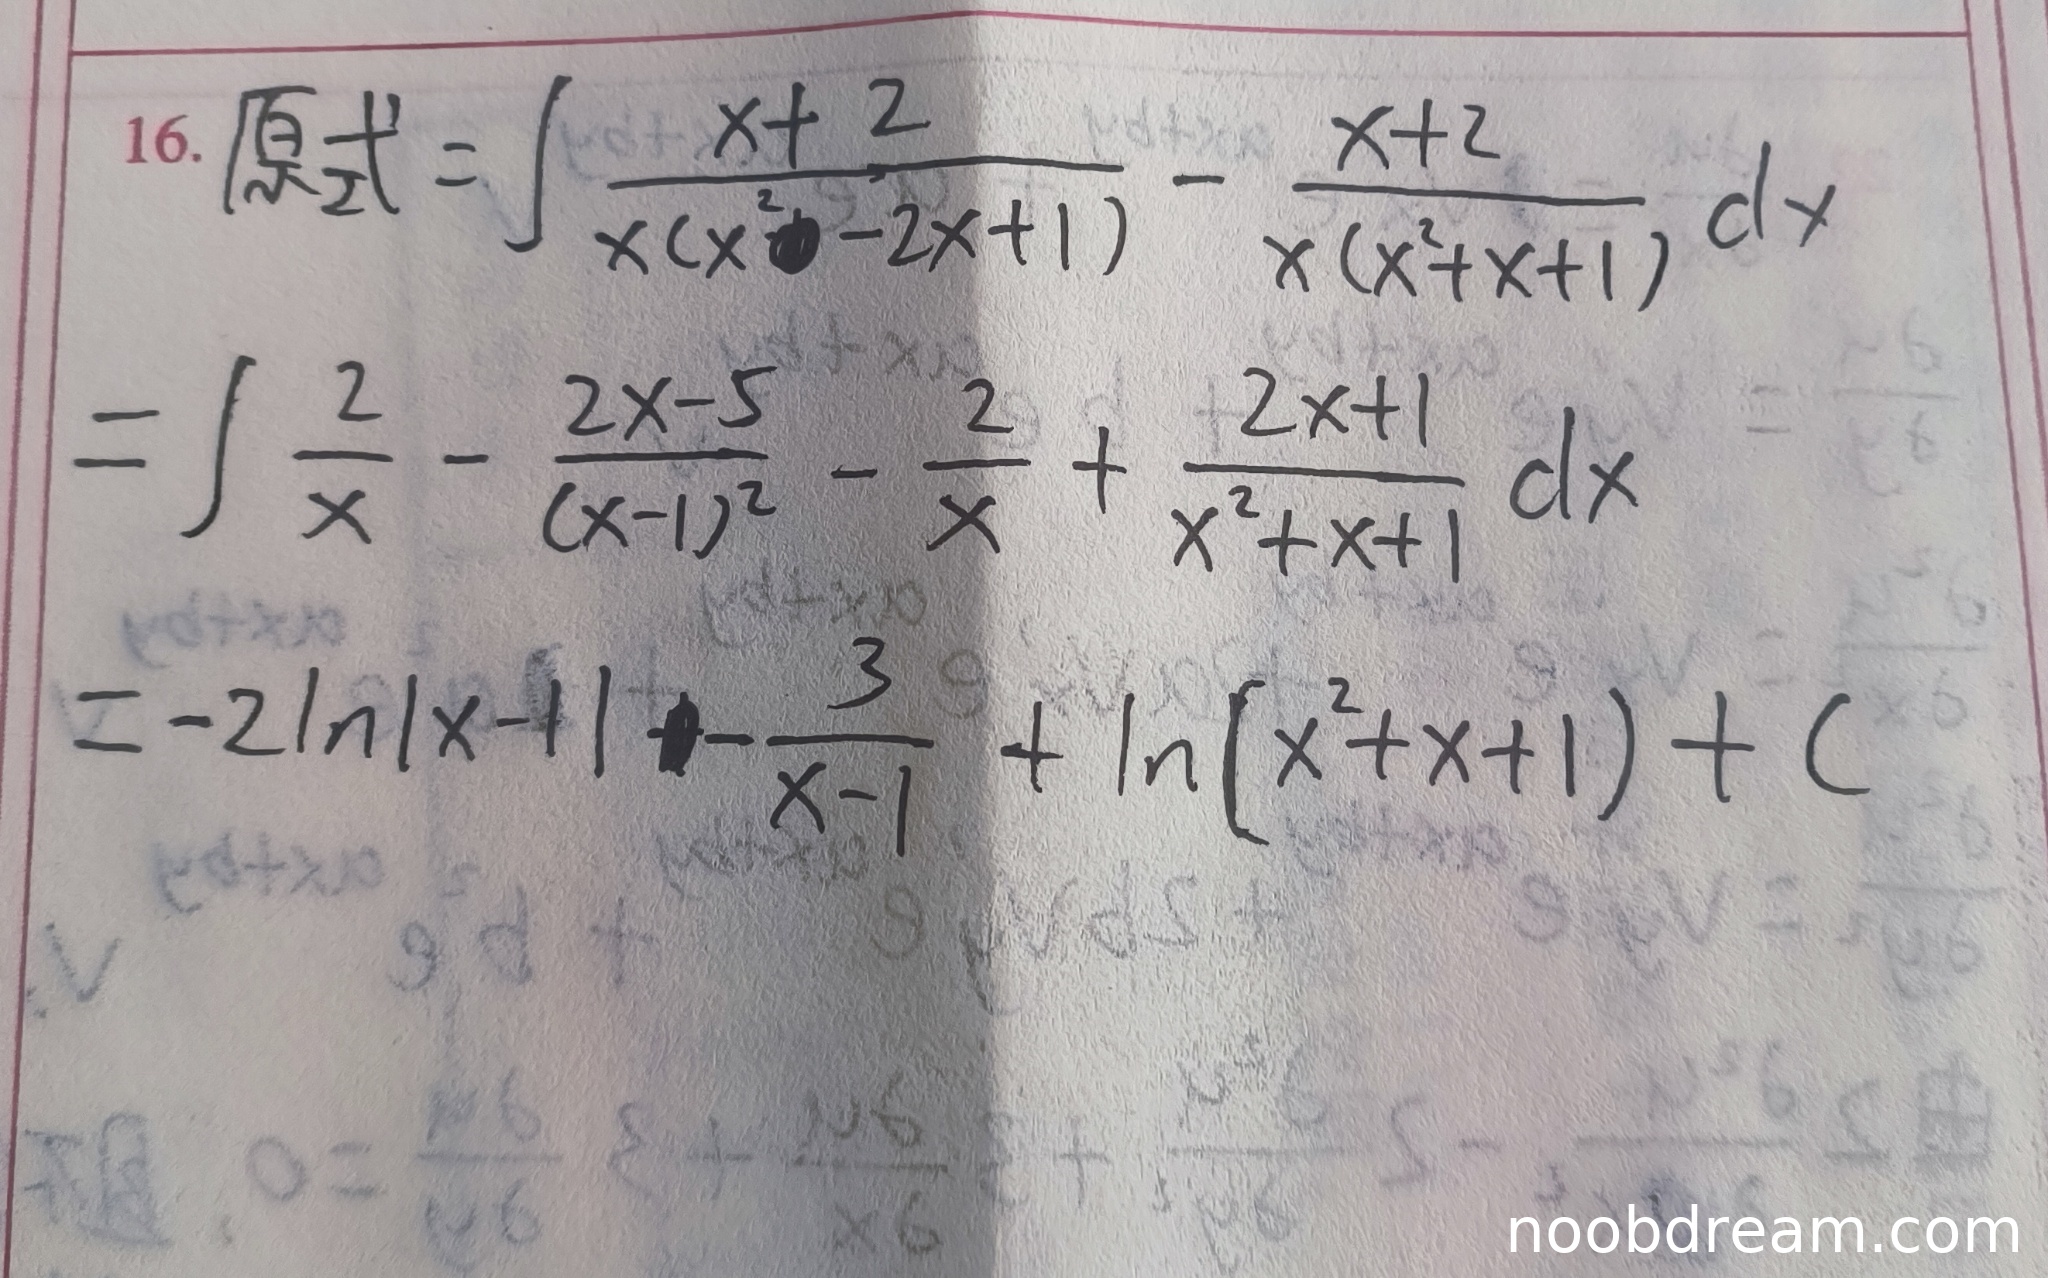 16. 原式 = ∫ (x+2)/(x(x²-2x+1)) - (x+2)/(x(x²+x+1)) dx
= ∫ 2/x - (2x-5)/(x-1)² - 2/x + (2x+1)/(x²+x+1) dx
= -2ln|x-1| - 3/(x-1) + ln(x²+x+1) + C
noobdream.com